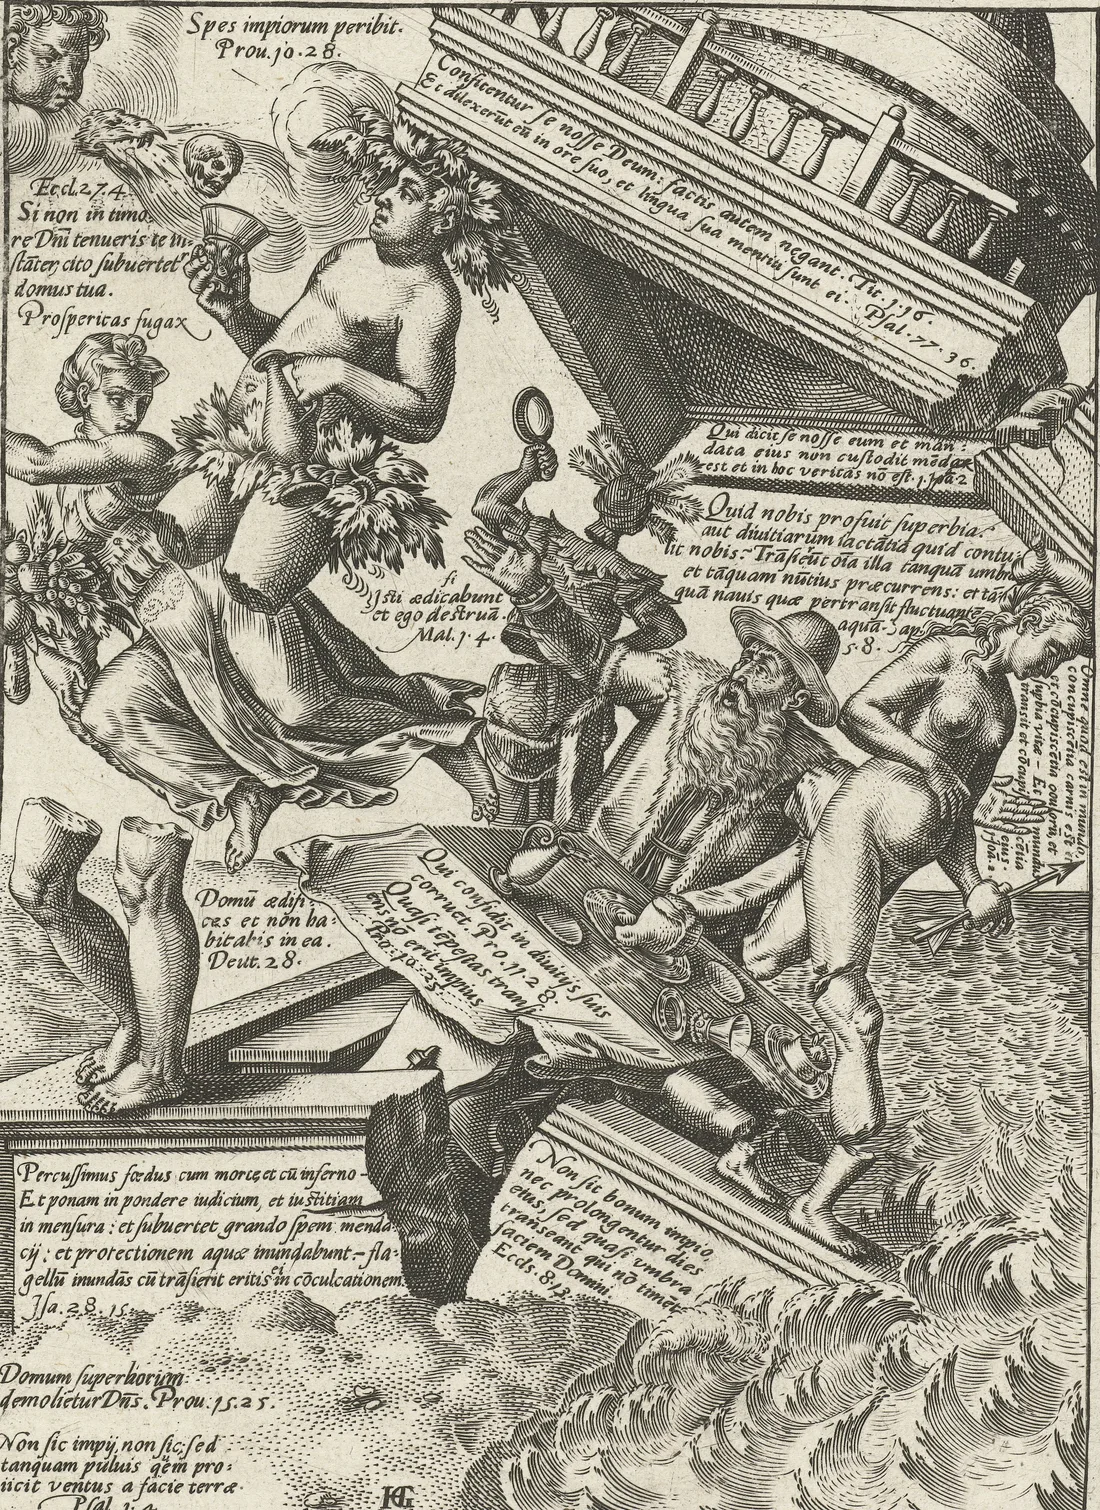 Spes impiorum peribit.
Prou. 10. 28.
Confitentur se nosse Deum: factis autem negant. Tit. 1. 16.
Et dilexerūt eū in ore suo, et lingua sua mentiti sunt ei. Psal. 77. 36.
Eccl. 27. 4.
Si non in timo
re Dn̄i tenueris te in-
stāter, cito subuertet
domus tua.
Prosperitas fugax
Qui dicit se nosse eum et man-
data eius non custodit mēdax
est et in hoc veritas nō est. 1. Joā. 2
Quid nobis profuit superbia?
aut diuitiarum iactātia quid contu-
lit nobis? Trāsierūt oīa illa tanquā umbra
et tāquam nūtius præcurrens: et tā
quā nauis quæ pertransit fluctuantē
aquā. Sap.
5. 8.
Jsti si ædicabunt
et ego destruā.
Mal. 1. 4.
Omne quod est in mundo,
concupiscētia carnis est
et cōcupiscētia oculorū, et
supbia vitæ - Et mundus
transit et cōcupiscētia
eius.
1 Joā. 2
Domū ædifi-
ces et nōn ha-
bitabis in ea.
Deut. 28.
Qui confidit in diuitijs suis
corruet. Pro. 11. 28
Quasi tēpestas trans
iens nō erit impius
Pro. 10. 25.
Percussimus fœdus cum morte, et cū inferno -
Et ponam in pondere iudicium, et iustitiam
in mensura: et subuertet grando spem menda-
cij: et protectionem aquæ inundabunt - fla-
gellū inundās cū trāsierit eritis ei in cōculcationem.
Jsa. 28. 15.
Non sit bonum impio,
nec prolongentur dies
eius, sed quasi vmbra
transeant qui nō timēt
faciem Domini.
Eccds. 8. 13.
Domum superborum
demolietur Dn̄s. Prou. 15. 25.
Non sic impij, non sic: sed
tanquam puluis quem pro-
iicit ventus a facie terræ.
Psal. 1. 4
HG